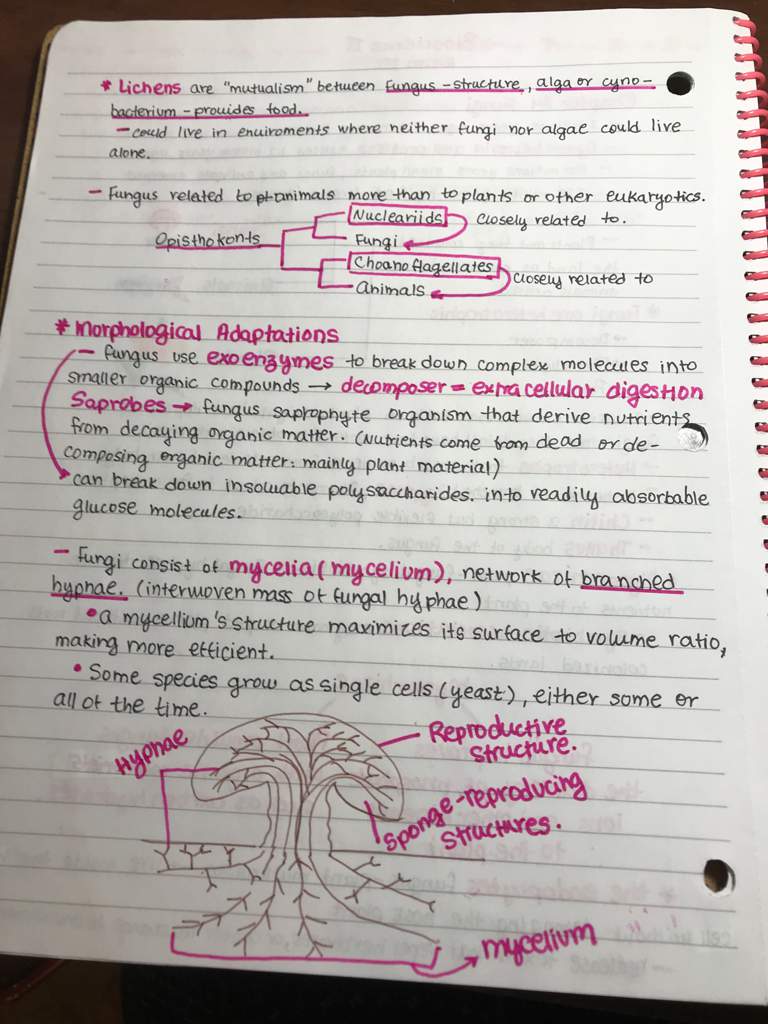 * Lichens are "mutualism" between fungus-structure, alga or cyno-
bacterium-provides food.
- could live in enviroments where neither fungi nor algae could live
alone.
- Fungus related to animals more than to plants or other eukaryotics.
Nucleariids closely related to.
Opisthokonts
Fungi
Choanoflagellates closely related to
animals
* Morphological Adaptations
- fungus use exoenzymes to break down complex molecules into
smaller organic compounds → decomposer = extracellular digestion
Saprobes → fungus saprophyte organism that derive nutrients
from decaying organic matter. (Nutrients come from dead or de-
composing organic matter: mainly plant material)
can break down insoluable polysaccharides. into readily absorbable
glucose molecules.
- Fungi consist of mycelia (mycelium), network of branched
hyphae. (interwoven mass of fungal hyphae)
• a mycellium's structure maximizes its surface to volume ratio,
making more efficient.
• Some species grow as single cells (yeast), either some or
all of the time.
Hyphae
Reproductive
structure.
Sponge-reproducing
structures.
mycelium